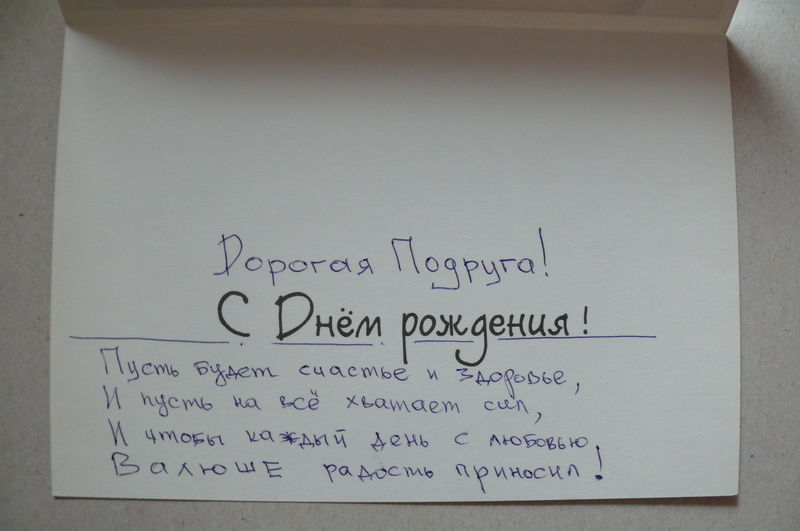 Дорогая Подруга!
С Днём рождения!
Пусть будет счастье и здоровье,
И пусть на всё хватает сил,
И чтобы каждый день с любовью
Валюше радость приносил!